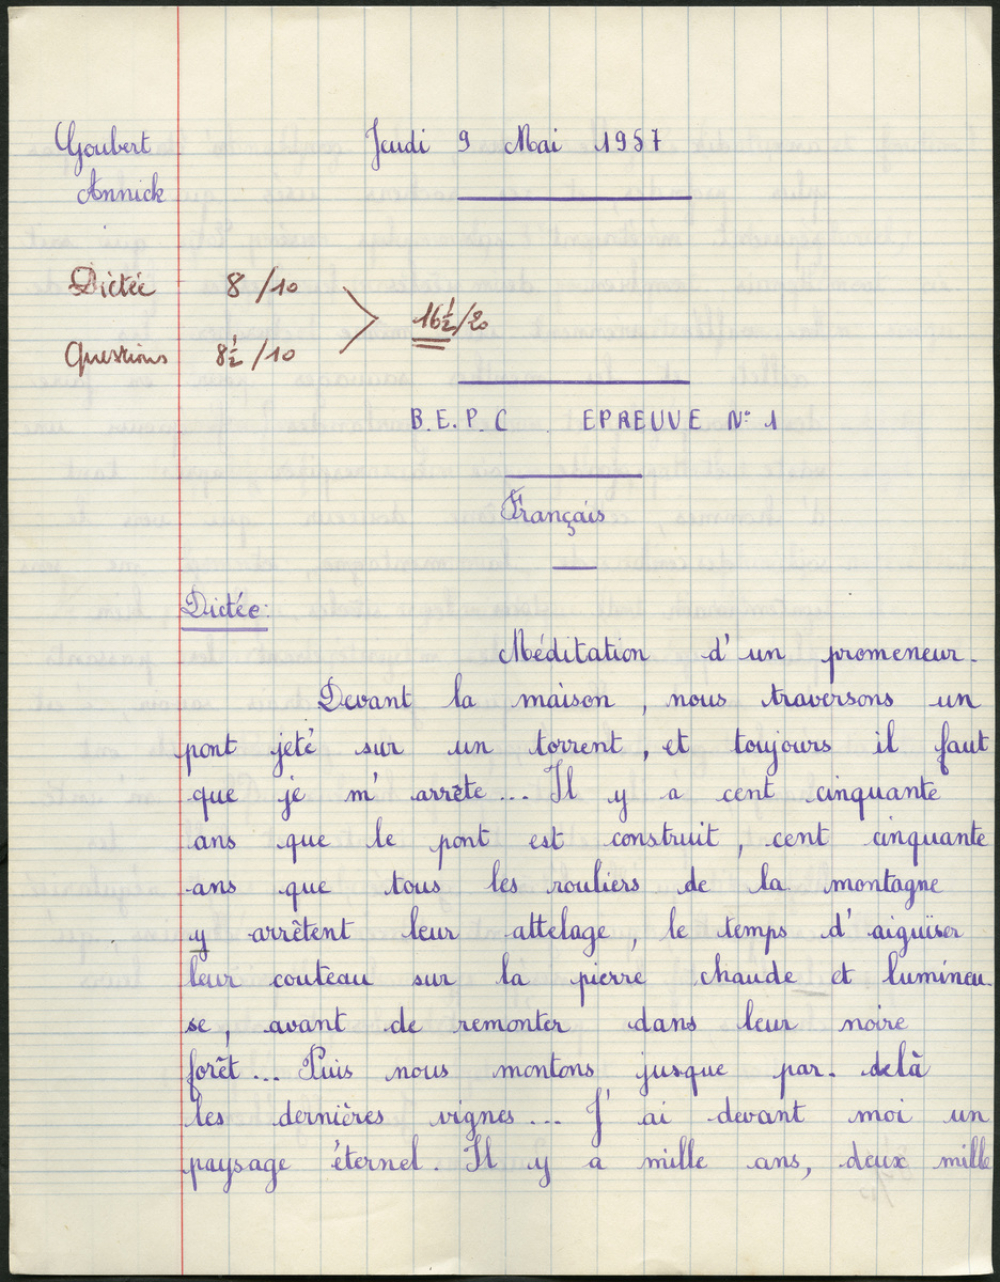 Goubert
Jeudi 9 Mai 1957
Annick
Dictée 8/10
16 ½/20
Questions 8 ½/10
B.E.P.C. EPREUVE N° 1
Français
Dictée:
Méditation d'un promeneur.
Devant la maison, nous traversons un
pont jeté sur un torrent, et toujours il faut
que je m'arrête... Il y a cent cinquante
ans que le pont est construit, cent cinquante
ans que tous les rouliers de la montagne
y arrêtent leur attelage, le temps d'aiguïser
leur couteau sur la pierre chaude et lumineu-
se, avant de remonter dans leur noire
forêt... Puis nous montons jusque par-delà
les dernières vignes... J'ai devant moi un
paysage éternel. Il y a mille ans, deux mille